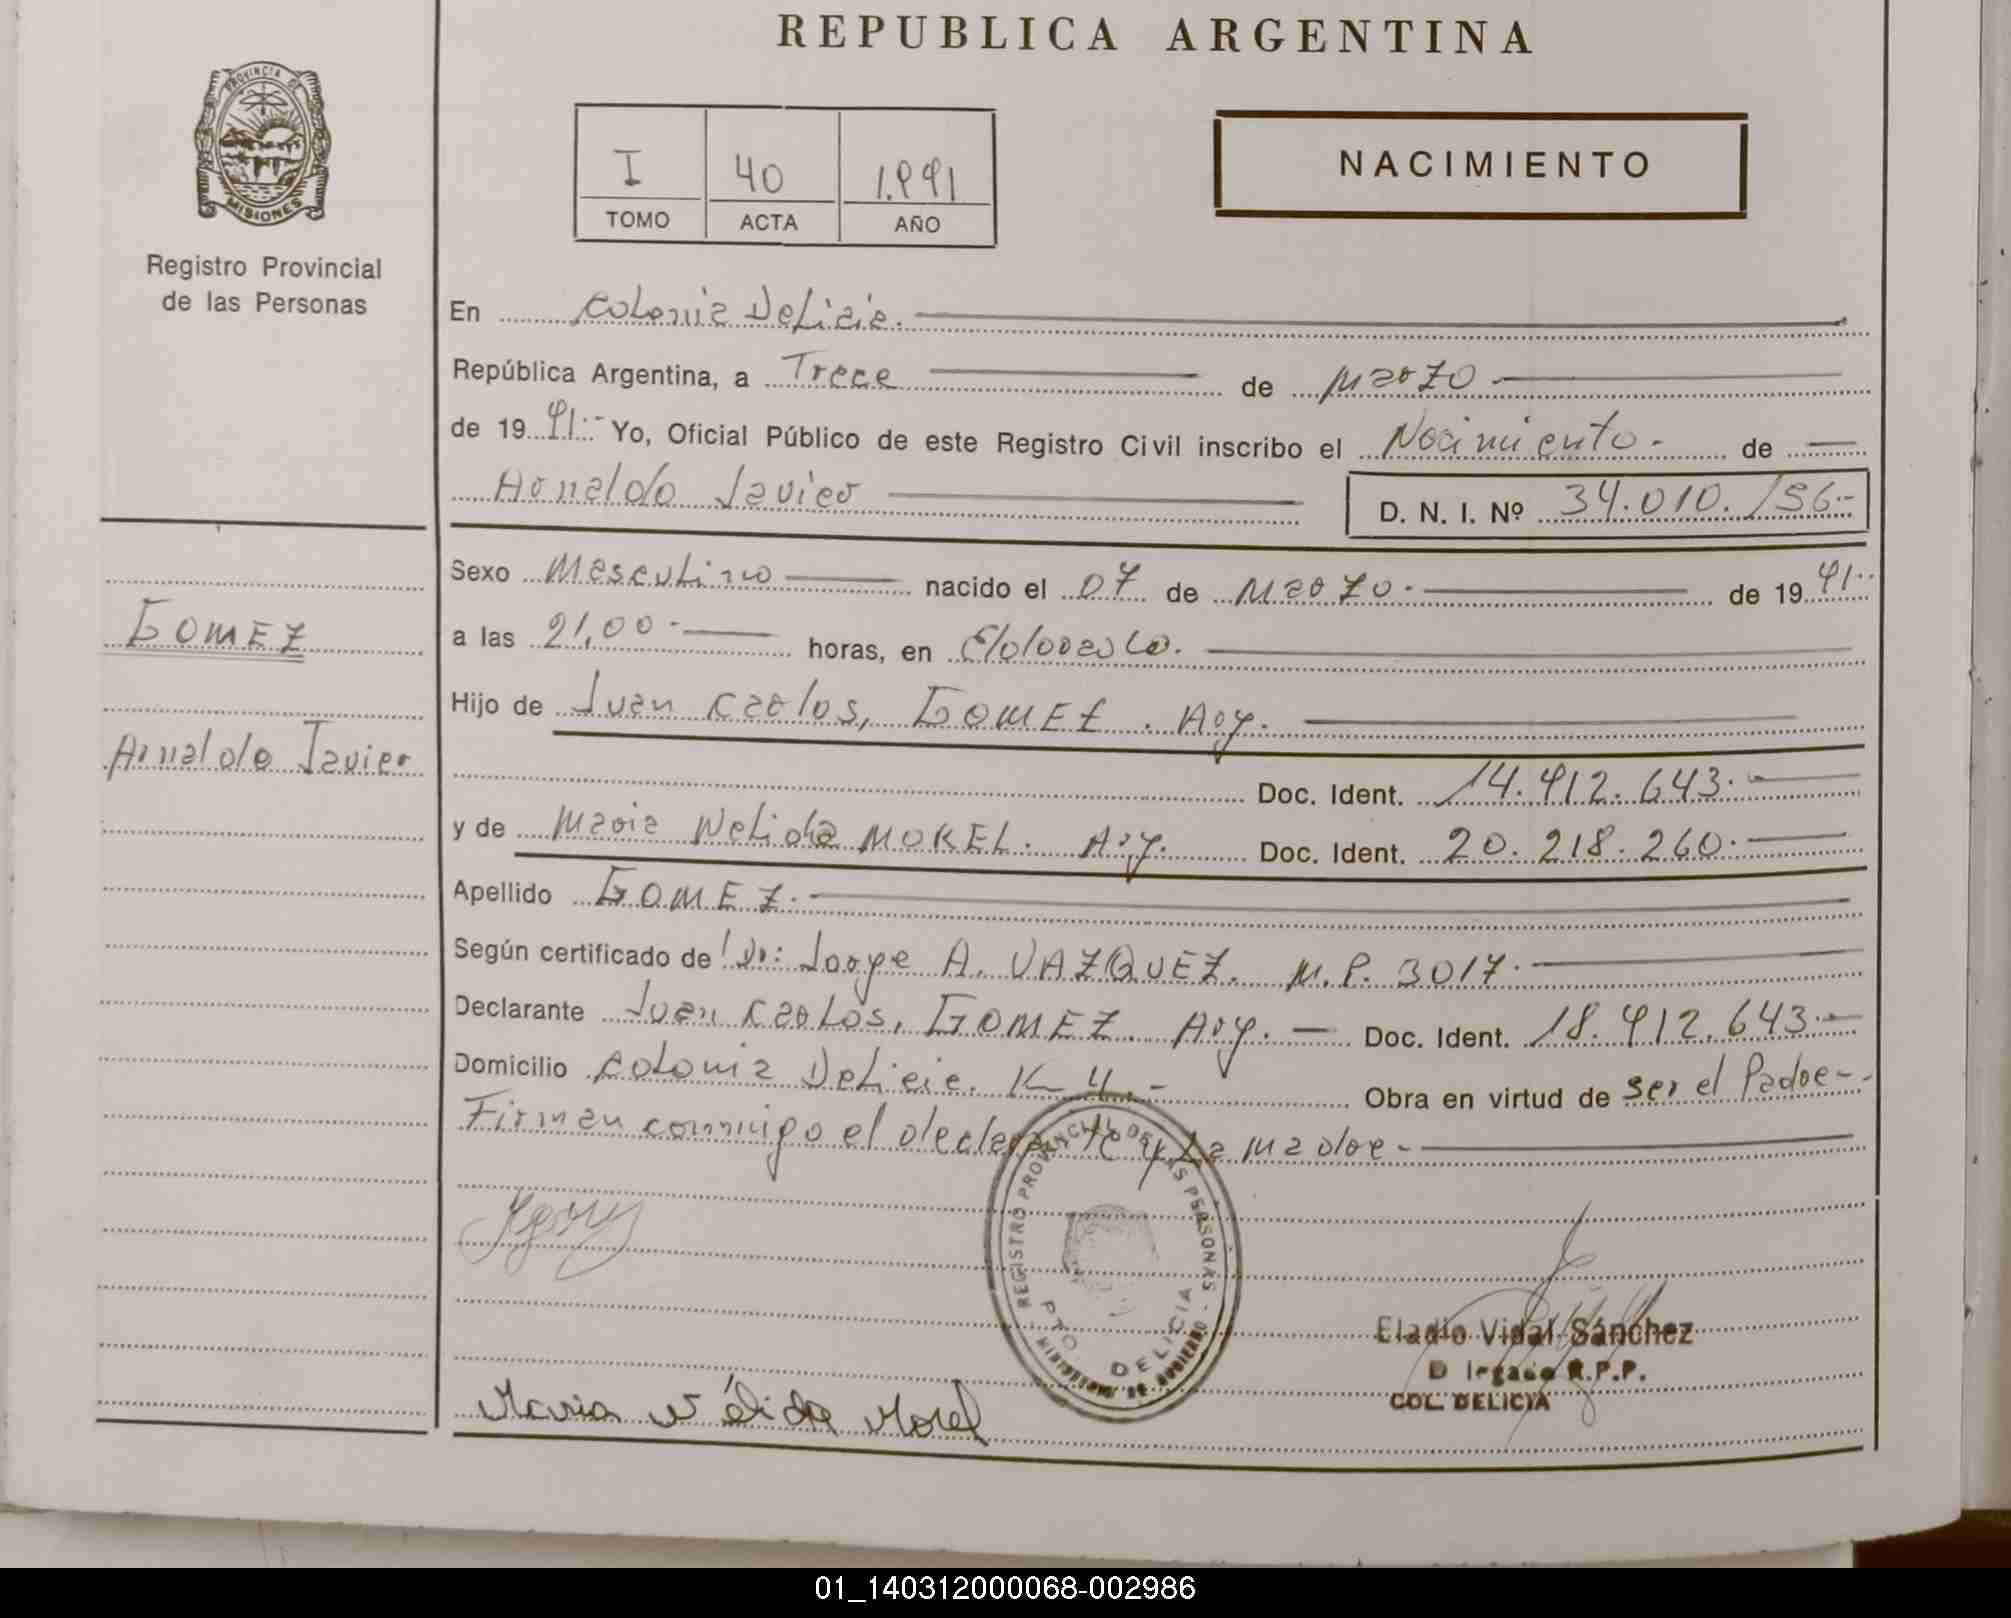 REPUBLICA ARGENTINA
PROVINCIA DE
MISIONES
Registro Provincial
de las Personas
I 40 1.991
TOMO ACTA AÑO
NACIMIENTO
En Colonia Delicia.
República Argentina, a Trece de Marzo
de 19 91.- Yo, Oficial Público de este Registro Civil inscribo el Nacimiento.- de
Arnaldo Javier D. N. I. Nº 34.010.156.-
Sexo Masculino nacido el 07 de Marzo.- de 19 91..
a las 21,00.- horas, en Eldorado.
Hijo de Juan Carlos, GOMEZ. Arg.
Doc. Ident. 14.912.643.-
y de Maria Nelida MOREL. Arg. Doc. Ident. 20.218.260.-
Apellido GOMEZ.-
Según certificado de Dr: Jorge A. VAZQUEZ. M.P. 3017.-
Declarante Juan Carlos, GOMEZ. Arg. — Doc. Ident. 18.912.643.-
Domicilio Colonia Delicia. K 4.- Obra en virtud de ser el Padre.-
Firman conmigo el declarante y La Madre.-
GOMEZ
Arnaldo Javier
REGISTRO PROVINCIAL DE LAS PERSONAS - MINISTERIO DE GOBIERNO -
PTO DELICIA
Eladio Vidal Sánchez
D legado R.P.P.
COL. DELICIA
Maria Nélida Morel
01_140312000068-002986